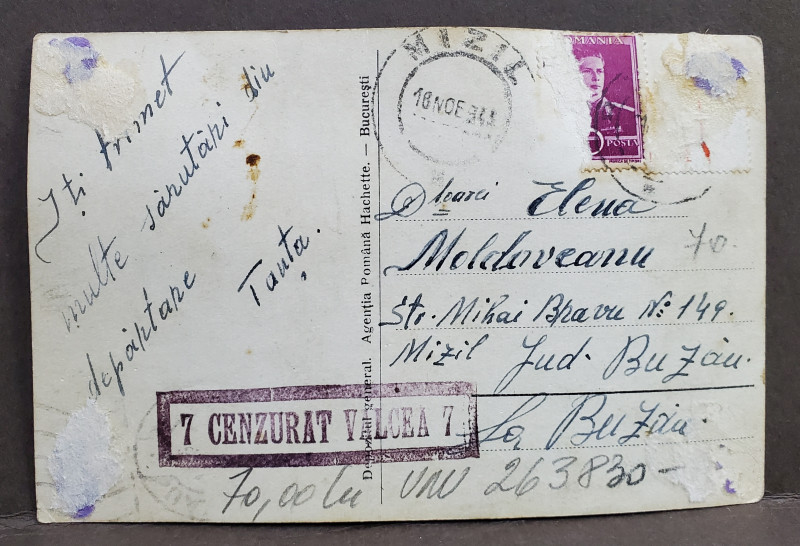 Iți trimet
multe sărutări din
depărtare Tanța.
Depozitul general. Agenția Română Hachette. — București
MIZIL
16 NOE 944
ROMANIA
POSTA
Dloarei Elena
Moldoveanu
Str. Mihai Bravu No 149.
Mizil Jud. Buzău.
La Buzău.
70.
7 CENZURAT VALCEA 7
70,00 lei VNV 263830-